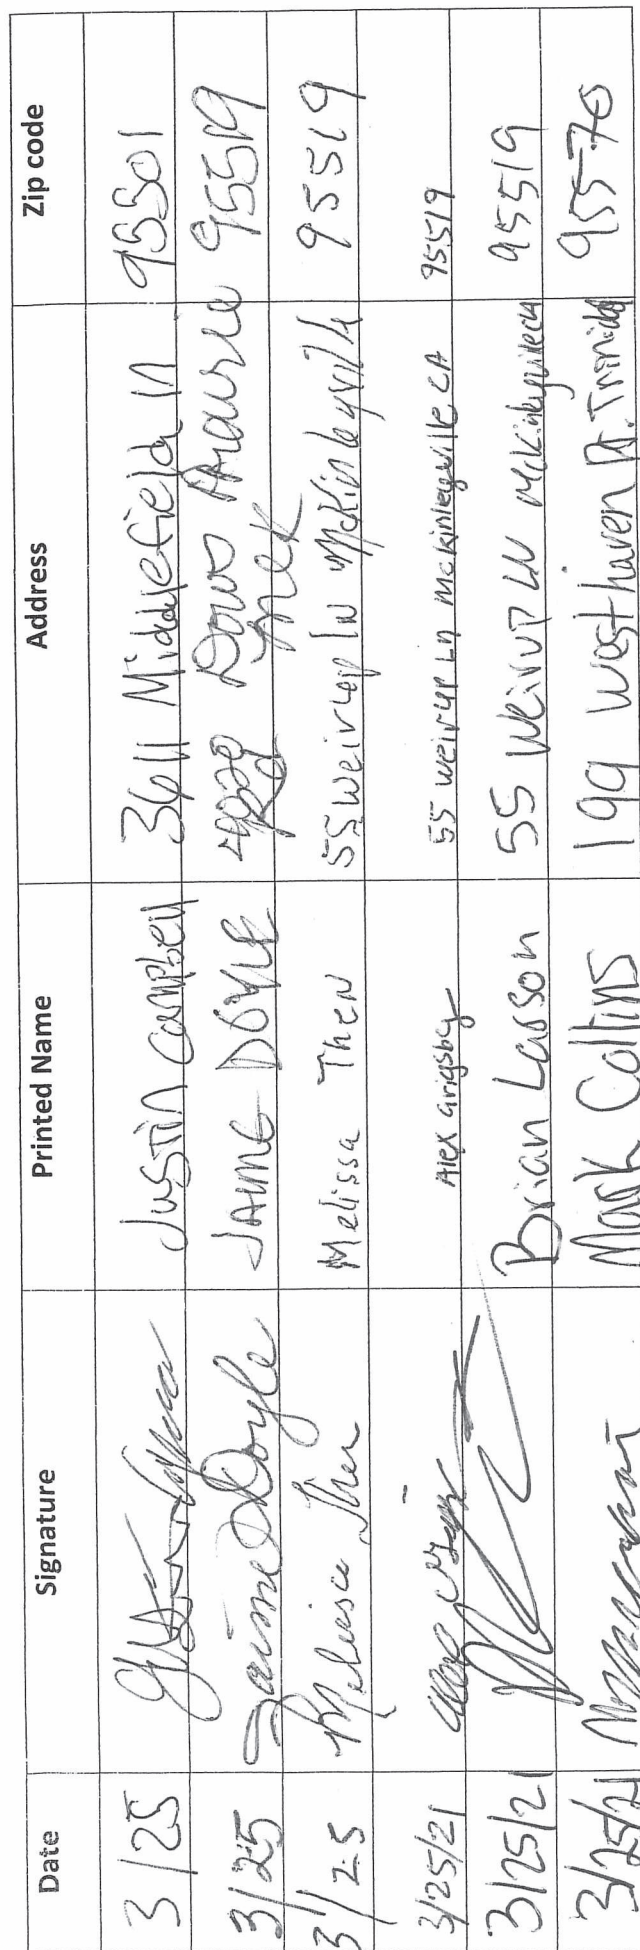 Date Signature Printed Name Address Zip code
3/25 Justin Campbell 3611 Middlefield ln 95501
3/25 Jaime Doyle JAIME DOYLE Dows Prairie 95519
McK
3/25 Melissa Then Melissa Then 55 Weirup ln McKinleyville 95519
3/25/21 Alex Grigsby 55 weirup Ln mckinleyville CA 95519
3/25/21 Brian Larson 55 Weirup LN McKinleyville CA 95519
3/25/21 Mark Collins 199 Westhaven Dr. Trinidad 95570